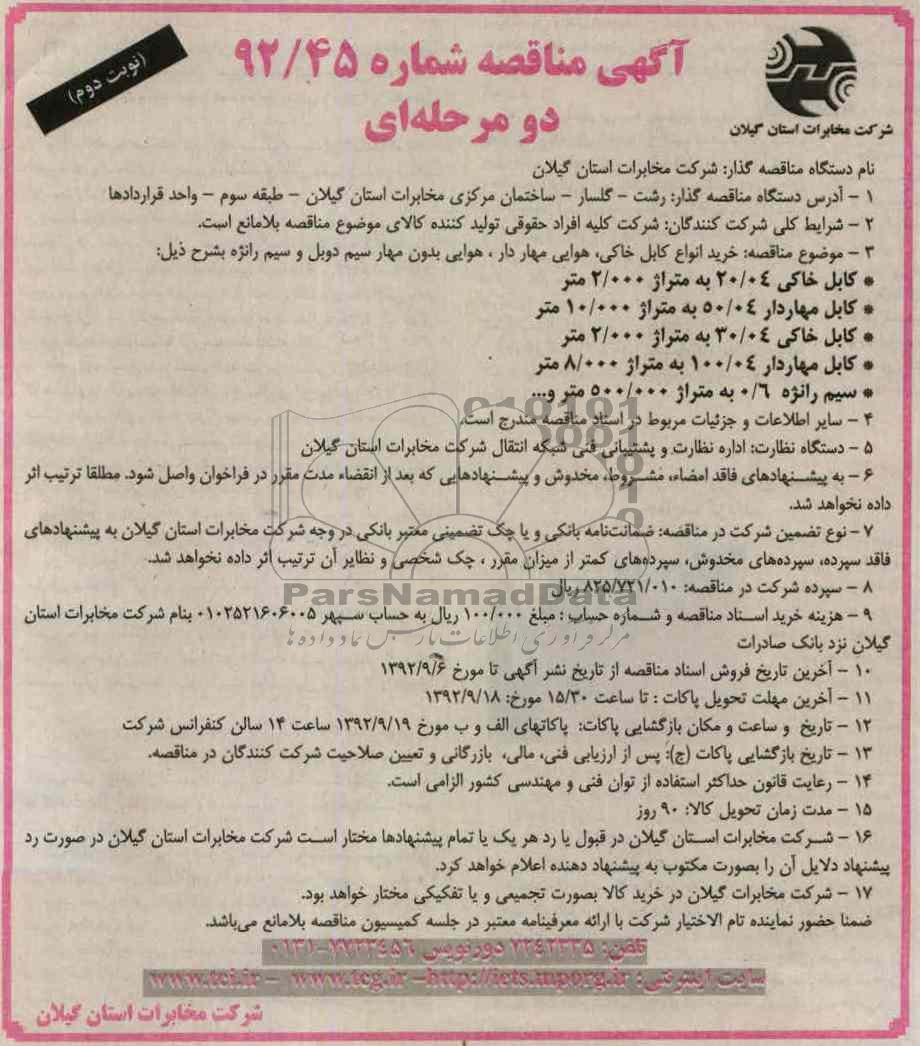 آگهی مناقصه شماره ۹۲/۴۵
(نوبت دوم)
دو مرحله‌ای
شرکت مخابرات استان گیلان
نام دستگاه مناقصه گذار: شرکت مخابرات استان گیلان
۱ – آدرس دستگاه مناقصه گذار: رشت – گلسار – ساختمان مرکزی مخابرات استان گیلان – طبقه سوم – واحد قراردادها
۲ – شرایط کلی شرکت کنندگان: شرکت کلیه افراد حقوقی تولید کننده کالای موضوع مناقصه بلامانع است.
۳ – موضوع مناقصه: خرید انواع کابل خاکی، هوایی مهار دار ، هوایی بدون مهار سیم دوبل و سیم رانژه بشرح ذیل:
* کابل خاکی ۲۰/۰۴ به متراژ ۲/۰۰۰ متر
* کابل مهاردار ۵۰/۰۴ به متراژ ۱۰/۰۰۰ متر
* کابل خاکی ۳۰/۰۴ به متراژ ۲/۰۰۰ متر
* کابل مهاردار ۱۰۰/۰۴ به متراژ ۸/۰۰۰ متر
* سیم رانژه ۰/۶ به متراژ ۵۰۰/۰۰۰ متر و...
۴ – سایر اطلاعات و جزئیات مربوط در اسناد مناقصه مندرج است.
۵ – دستگاه نظارت: اداره نظارت و پشتیبانی فنی شبکه انتقال شرکت مخابرات استان گیلان
۶ – به پیشنهادهای فاقد امضاء، مشروط، مخدوش و پیشنهادهایی که بعد از انقضاء مدت مقرر در فراخوان واصل شود. مطلقا ترتیب اثر
داده نخواهد شد.
۷ – نوع تضمین شرکت در مناقصه: ضمانت‌نامه بانکی و یا چک تضمینی معتبر بانکی در وجه شرکت مخابرات استان گیلان به پیشنهادهای
فاقد سپرده، سپرده‌های مخدوش، سپرده‌های کمتر از میزان مقرر ، چک شخصی و نظایر آن ترتیب اثر داده نخواهد شد.
۸ – سپرده شرکت در مناقصه: ۸۲۵/۷۲۱/۰۱۰ ریال
ParsNamadData
۹ – هزینه خرید اسناد مناقصه و شماره حساب : مبلغ ۱۰۰/۰۰۰ ریال به حساب سپهر ۰۱۰۲۵۲۱۶۰۶۰۰۵ بنام شرکت مخابرات استان
گیلان نزد بانک صادرات
مرکز فرآوری اطلاعات پارس نماد داده ها
۱۰ – آخرین تاریخ فروش اسناد مناقصه از تاریخ نشر آگهی تا مورخ ۱۳۹۲/۹/۶
۱۱ – آخرین مهلت تحویل پاکات : تا ساعت ۱۵/۳۰ مورخ: ۱۳۹۲/۹/۱۸
۱۲ – تاریخ و ساعت و مکان بازگشایی پاکات: پاکاتهای الف و ب مورخ ۱۳۹۲/۹/۱۹ ساعت ۱۴ سالن کنفرانس شرکت
۱۳ – تاریخ بازگشایی پاکات (ج): پس از ارزیابی فنی، مالی، بازرگانی و تعیین صلاحیت شرکت کنندگان در مناقصه.
۱۴ – رعایت قانون حداکثر استفاده از توان فنی و مهندسی کشور الزامی است.
۱۵ – مدت زمان تحویل کالا: ۹۰ روز
۱۶ – شرکت مخابرات استان گیلان در قبول یا رد هر یک یا تمام پیشنهادها مختار است شرکت مخابرات استان گیلان در صورت رد
پیشنهاد دلایل آن را بصورت مکتوب به پیشنهاد دهنده اعلام خواهد کرد.
۱۷ – شرکت مخابرات گیلان در خرید کالا بصورت تجمیعی و یا تفکیکی مختار خواهد بود.
ضمنا حضور نماینده تام الاختیار شرکت با ارائه معرفینامه معتبر در جلسه کمیسیون مناقصه بلامانع می‌باشد.
تلفن: ۷۲۴۲۳۳۵ دورنویس ۷۷۲۳۴۵۶-۰۱۳۱
سایت اینترنتی: www.tci.ir – www.tcg.ir –http://iets.mporg.ir
شرکت مخابرات استان گیلان